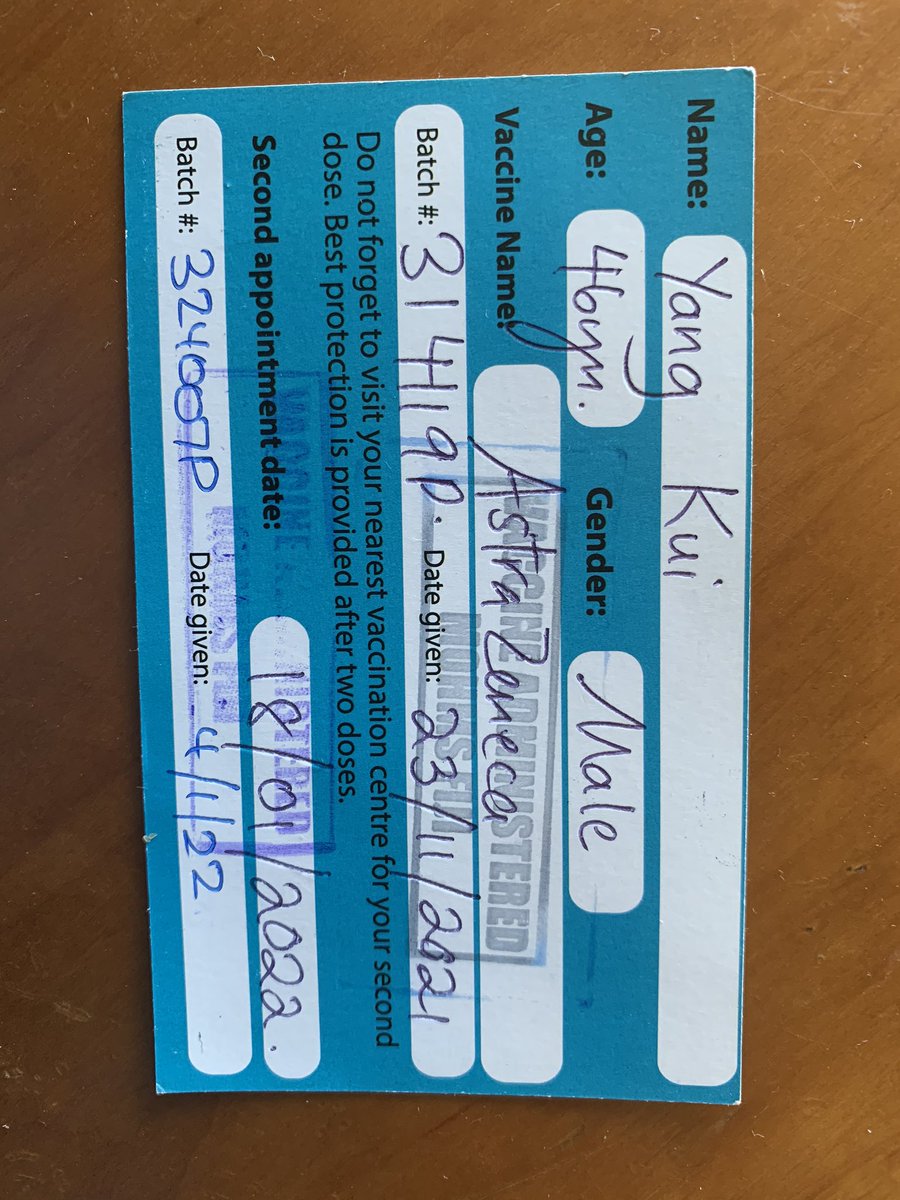 Name: Yang Kui
Age: 46yrs. Gender: Male
Vaccine Name: AstraZeneca
VACCINE ADMINISTERED
Batch #: 31419P. Date given: 23/11/2021
Do not forget to visit your nearest vaccination centre for your second
dose. Best protection is provided after two doses.
Second appointment date: 18/01/2022.
Batch #: 324007P Date given: 4/1/22